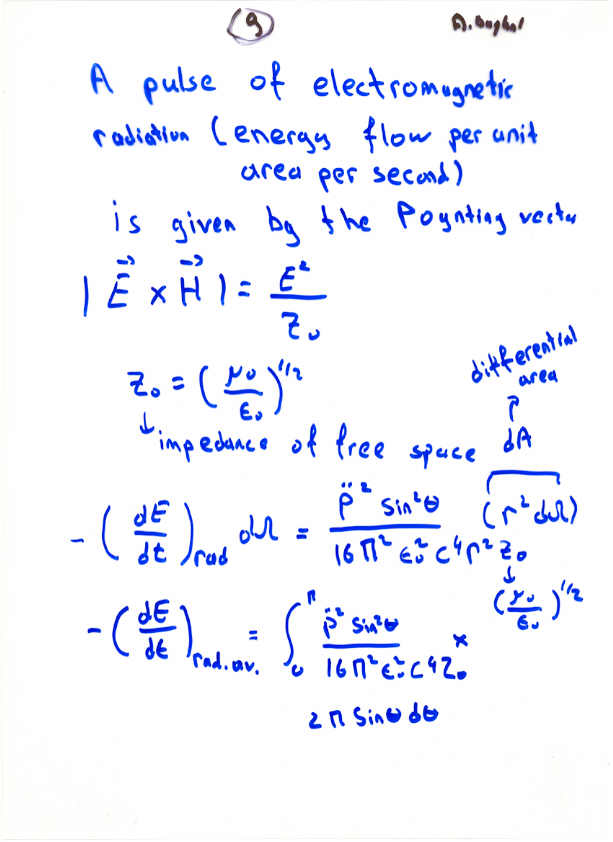 (9)
A pulse of electromagnetic
radiation (energy flow per unit
area per second)
is given by the Poynting vector
|E⃗ × H⃗| = E² / Z₀
differential
area
Z₀ = (μ₀/ε₀)^1/2
↓ impedance of free space dA
-(dE/dt)rad dΩ = p̈² sin²θ / 16Π² ε₀² c⁴ r² Z₀ (r² dΩ)
(μ₀/ε₀)^1/2
-(dE/dt)rad.av. = ∫₀^Π p̈² sin²θ / 16Π² ε₀² c⁴ Z₀ ×
2Π sinθ dθ